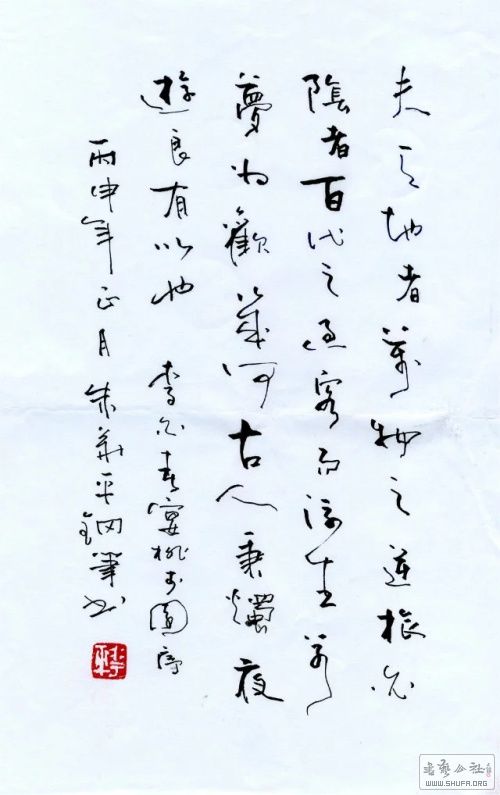 夫天地者萬物之逆旅光
陰者百代之過客而浮生若
夢為歡幾何古人秉燭夜
遊良有以也 李白春宴桃李園序
丙申年正月朱華平鋼筆書
書藝公社
WWW.SHUFA.ORG